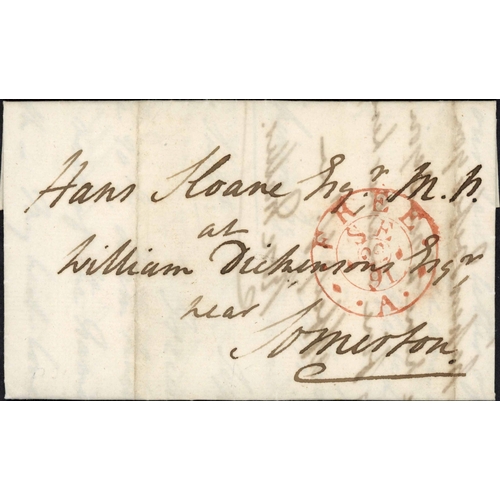 Hans Sloane Esqr. M.P.
at
William Dickensons Esqr
near
Somerton.
FREE
SE
91
A